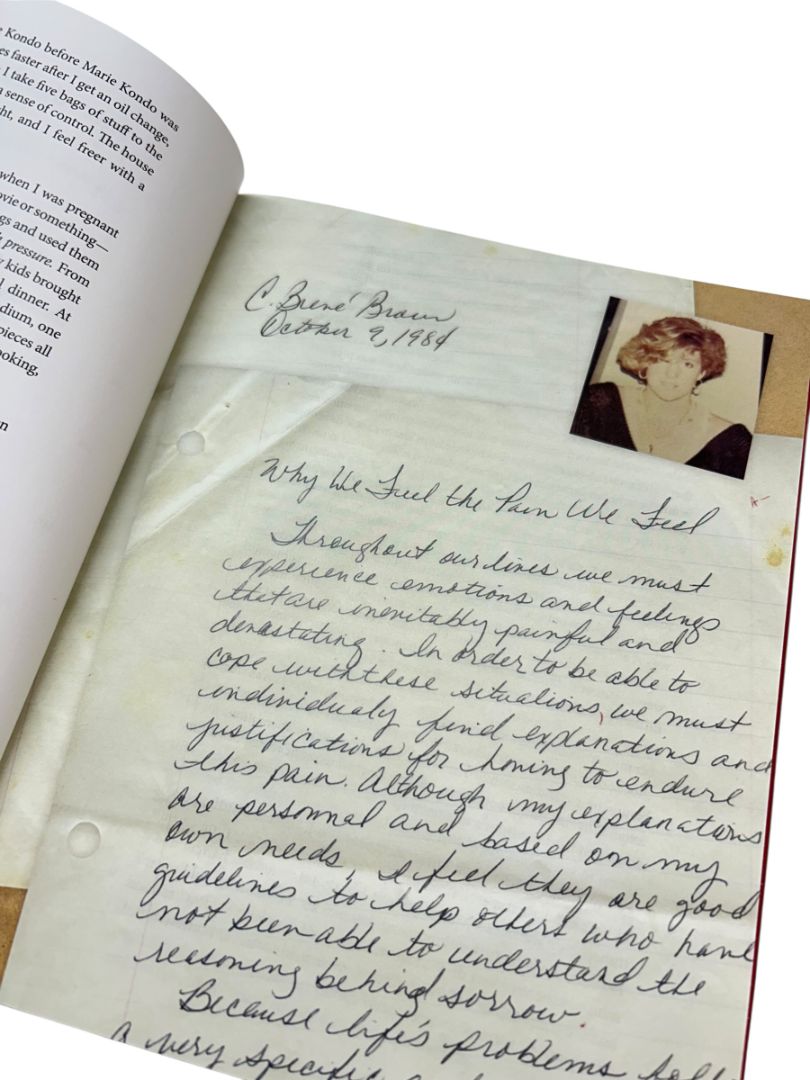 Kondo before Marie Kondo was
es faster after I get an oil change,
I take five bags of stuff to the
a sense of control. The house
ht, and I feel freer with a
when I was pregnant
ovie or something—
gs and used them
pressure. From
kids brought
dinner. At
dium, one
pieces all
ooking,
n
C. Brené Brown
October 9, 1984
Why We Feel the Pain We Feel
Throughout our lives we must
experience emotions and feelings
that are inevitably painful and
devastating. In order to be able to
cope with these situations, we must
individualy find explanations and
justifications for having to endure
this pain. Although my explanations
are personal and based on my
own needs, I feel they are good
guidelines to help others who have
not been able to understand the
reasoning behind sorrow.
Because life's problems
a very specific